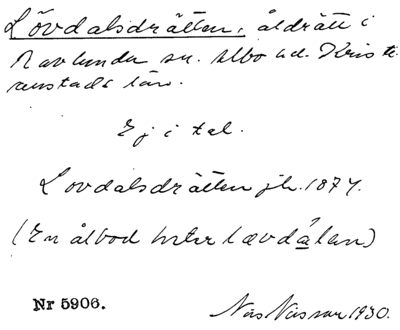 Lövdalsdrätten, åldrätt i
Ravlunda sn. Albo hd. Kristi-
anstads län.
Ej i tal.
Lovdalsdrätten jb. 1877.
(En ålbod heter Lævdálen)
Nr 5906. Nils Nilsson 1930.